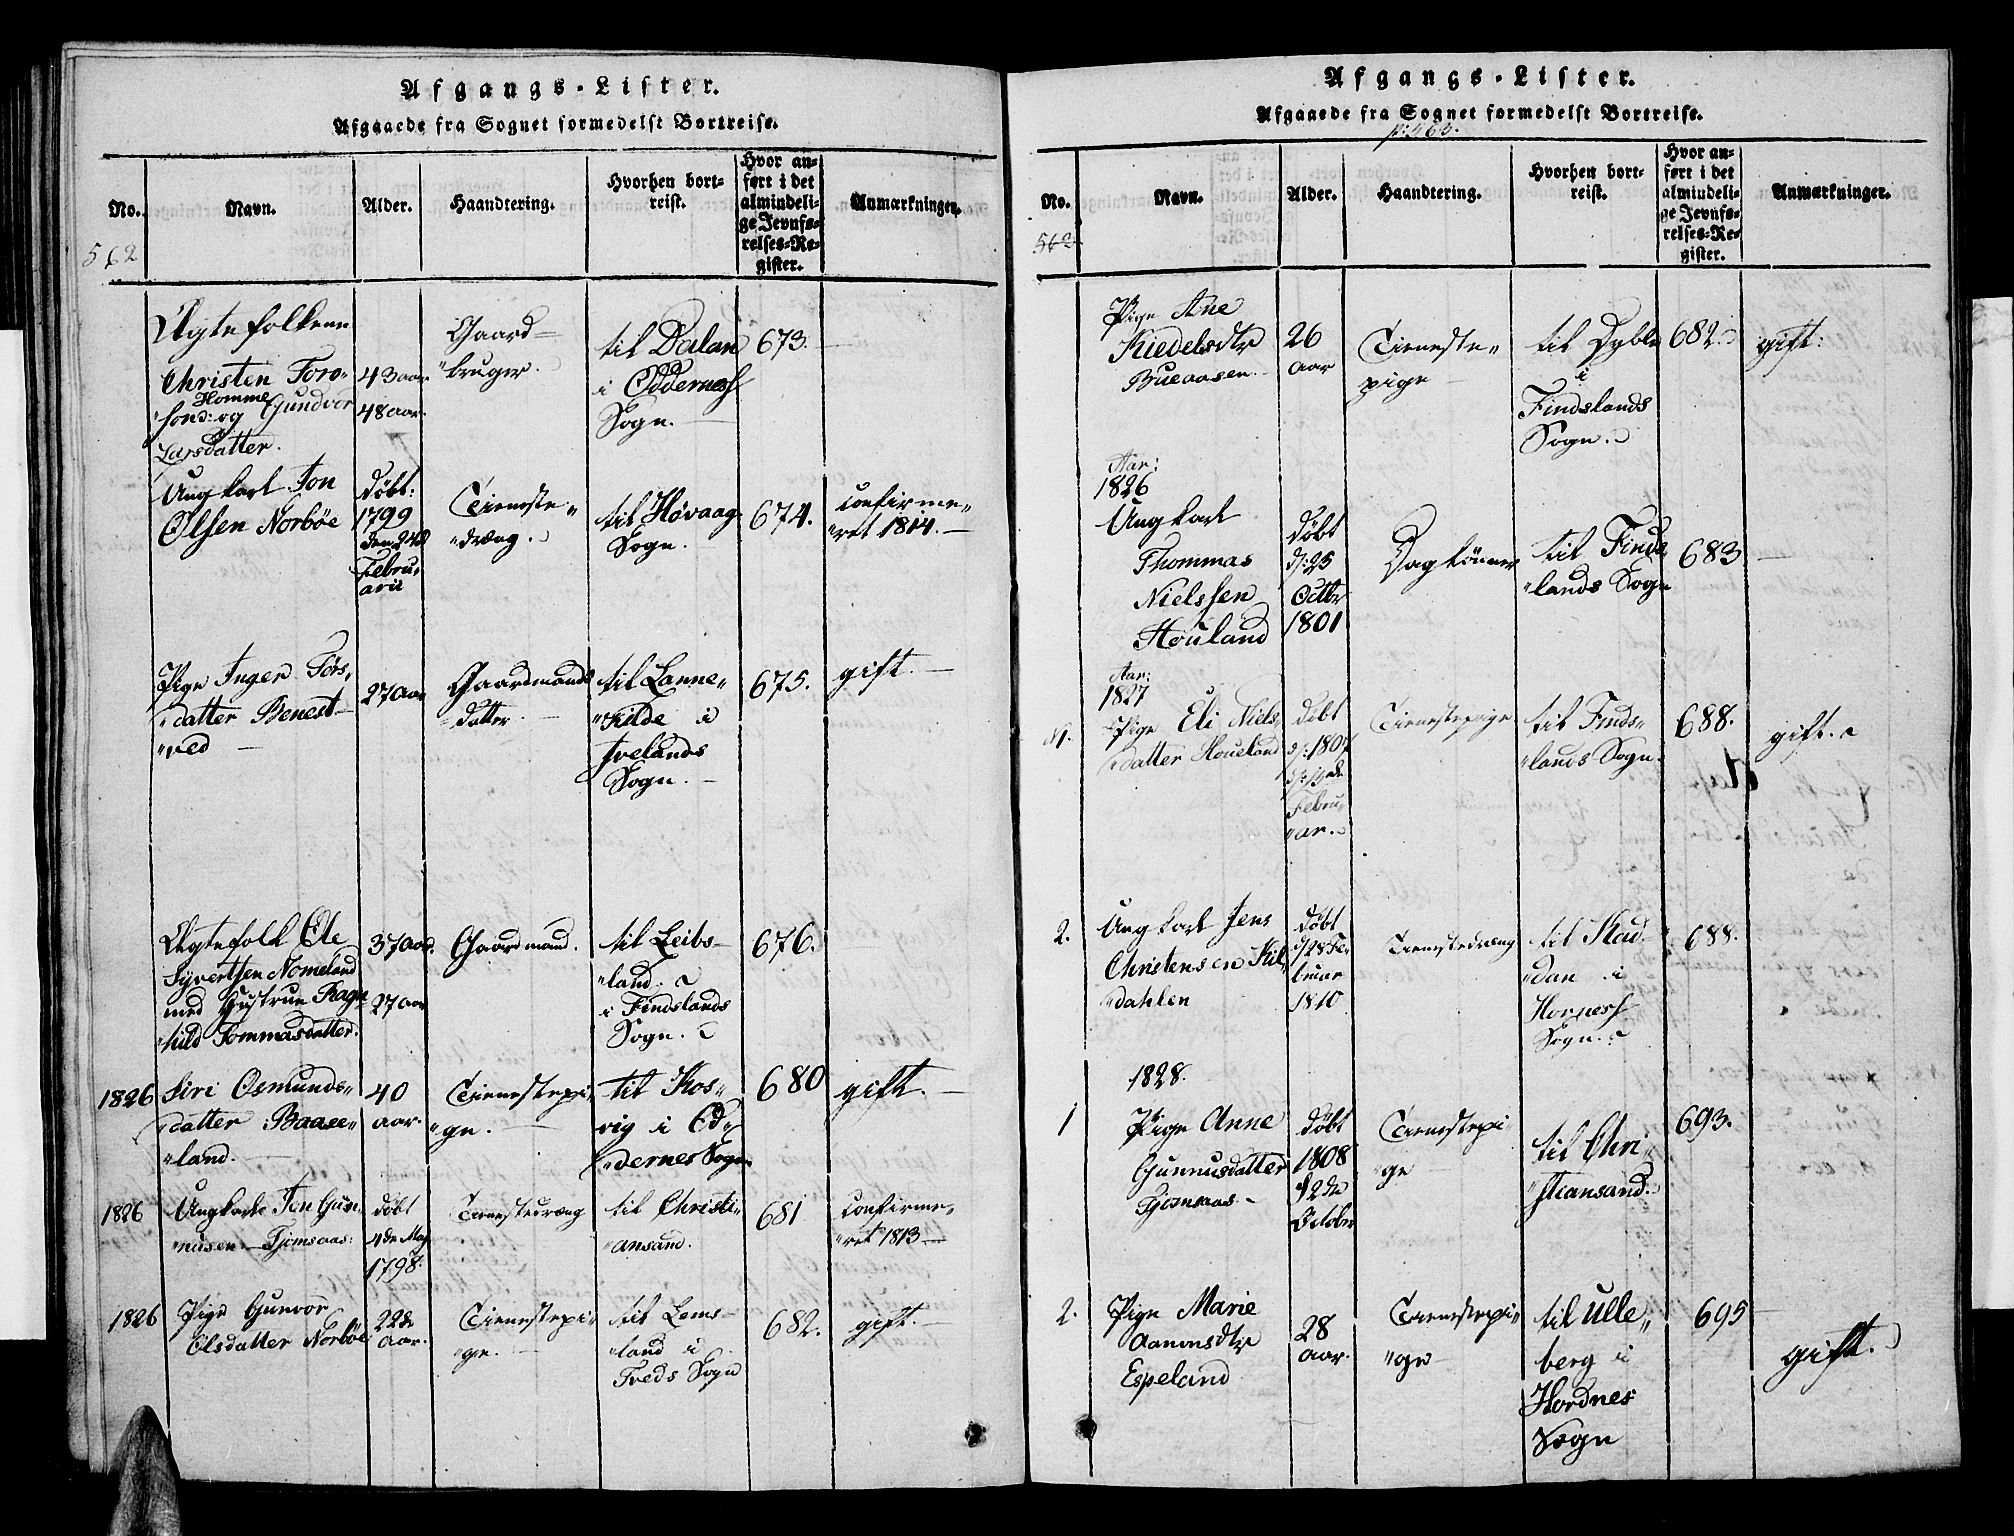 Afgangs-Lister.
Afgaaede fra Sognet formedelst Bortreise.
No.
Navn.
Alder.
Haandtering.
Hvorhen bort-
reist.
Hvor an-
ført i det
almindeli-
ge Jevnfø-
relses-Re-
gister.
Anmærkninger.
562
Ægtefolkene
Christen Toro-
Homme
søn: og Gundvor
Larsdatter.
43 aar
48 aar.
Gaard=
bruger.
til Dalan
i Oddernes
Sogn.
673.
Ungkarl Jon
Olsen Norbøe
døbt:
1799
den 24d
Febru-
arii
Tieneste-
dræng.
til Høvaag
Sogn.
674.
Confirme-
ret 1814.
Pige Inger Tørs-
datter Benest-
ved
27 Aar
Gaardmands
datter.
til Lanne-
kilde i
Ivelands
Sogn.
675.
gift.
Ægtefolk Ole
Syvertsen Nomeland
med Hustrue Ragn-
hild Tommasdatter.
37 Aar.
27 aar
Gaardmand.
til Leibs-
land.
i Findslands
Sogn.
676.
1826
Siri Osmunds-
datter Baase-
land.
40
aar.
Tienestepi-
ge.
til Kos-
vig i Od-
dernes Sogn
680
gift.
1826
Ungkarl Jon Gun-
nusen Tjomsaas:
døbt
4de Maj
1798.
Tienestedræng
til Christi-
ansand.
681
Confirme-
ret 1813
1826
Pige Gunvor
Olsdatter Norbøe
22de
Aar.
Tienestepi-
ge.
til Loms-
land i
Treds Sogn
682.
gift.
Afgangs-Lister.
Afgaaede fra Sognet formedelst Bortreise.
p: 563.
No.
Navn.
Alder.
Haandtering.
Hvorhen bort-
reist.
Hvor an-
ført i det
almindeli-
ge Jevnfø-
relses-Re-
gister.
Anmærkninger.
562
Pige Ane
Kiedelsdtr
Bueaasen
26
aar
Tieneste-
pige
til Dyble
i
Findslands
Sogn.
682.
gift:
Aar:
1826
Ungkarl
Thommas
Nielssen
Houland
Døbt
d: 25
Octbr
1801
Daglønner
til Finds-
lands Sogn
683
Aar:
1827
Pige Eli Niels-
datter Houeland
døbt
Febru-
ar.
Tienestepige
til Finds-
lands Sogn.
688.
gift.
2.
Ungkarl Jens
Christensen Kil-
dahlen
døbt
d/28 Fe-
bruar
1810
Tienestedræng
til Kad-
dan i
Hornes
Sogn.
688.
1828.
1
Pige Anne
Gunnusdatter
Tjomsaas
døbt
1808
Octobr
Tienestepi
ge
til Chri-
stiansand.
693.
2.
Pige Marie
Aanonsdtr
Espeland
28
aar.
Tienestepi-
ge
til Ulle-
berg i
Hordnes
Sogn
695
gift.